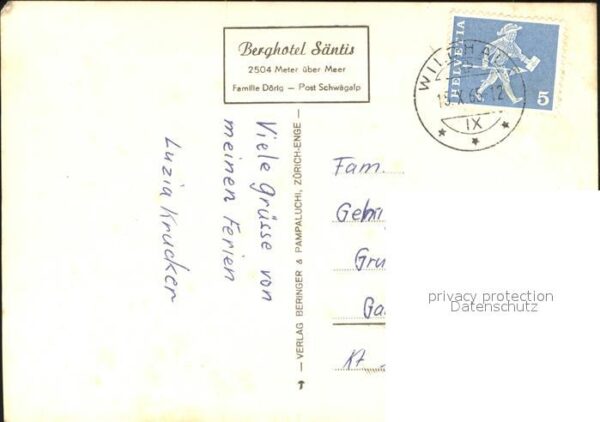 Berghotel Säntis
2504 Meter über Meer
Familie Dörig — Post Schwägalp
HELVETIA
5
IX
Viele Grüsse von
meinen Ferien
Luzia Krucker
— VERLAG BERINGER & PAMPALUCHI, ZÜRICH-ENGE —
Fam.
Kt
privacy protection
Datenschutz